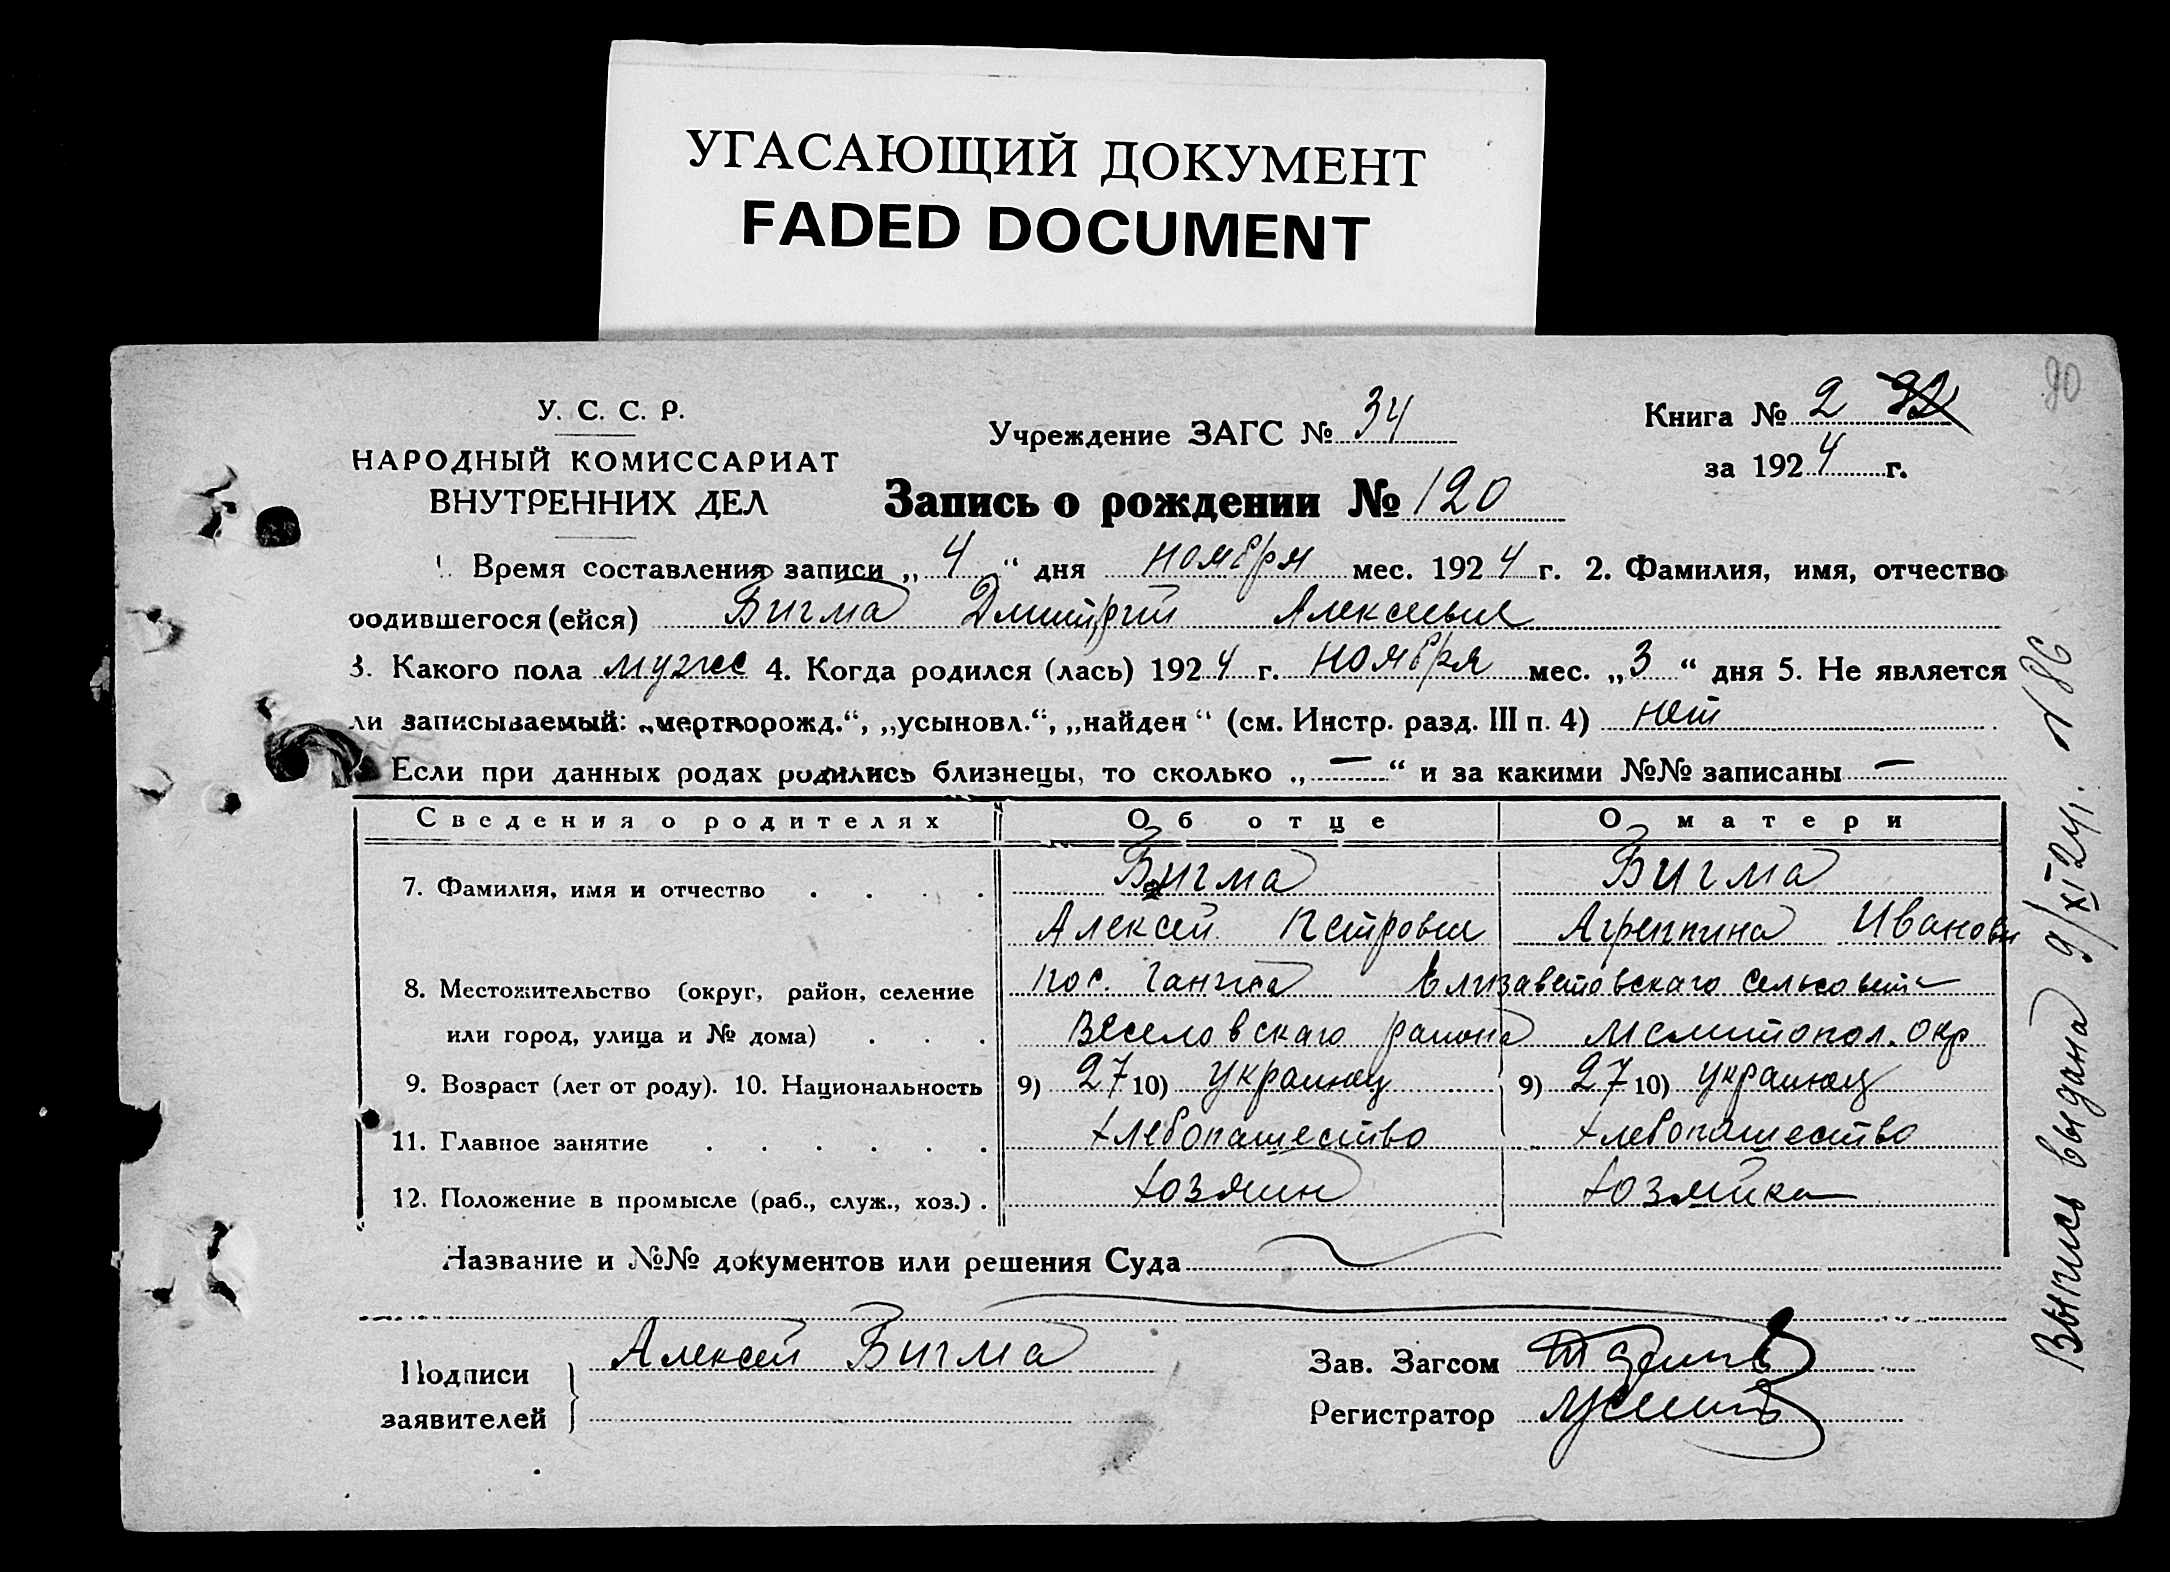 УГАСАЮЩИЙ ДОКУМЕНТ
FADED DOCUMENT
90
У. С. С. Р.
НАРОДНЫЙ КОМИССАРИАТ
ВНУТРЕННИХ ДЕЛ
Учреждение ЗАГС № 34
Книга № 2
за 1924 г.
Запись о рождении № 120
1. Время составления записи „4“ дня ноября мес. 1924 г. 2. Фамилия, имя, отчество
родившегося (ейся) Бигма Дмитрий Алексеевич
3. Какого пола мужс 4. Когда родился (лась) 1924 г. ноября мес. „3“ дня 5. Не является
ли записываемый: „мертворожд.“, „усыновл.“, „найден“ (см. Инстр. разд. III п. 4) нет
Если при данных родах родились близнецы, то сколько „—“ и за какими №№ записаны —
Сведения о родителях Об отце О матери
7. Фамилия, имя и отчество Бигма Бигма
Алексей Петрович Агреппина Иванови
8. Местожительство (округ, район, селение пос. Елизаветовскаго сельсовета
или город, улица и № дома) Веселовскаго района Мелитопол. окр
9. Возраст (лет от роду). 10. Национальность 9) 27 10) украинец 9) 27 10) украинец
11. Главное занятие хлебопашество хлебопашество
12. Положение в промысле (раб., служ., хоз.) хозяин хозяйка
Название и №№ документов или решения Суда
Подписи
заявителей
Алексей Бигма
Зав. Загсом
Регистратор
Выпись выдана 9/XI 24г. № 86